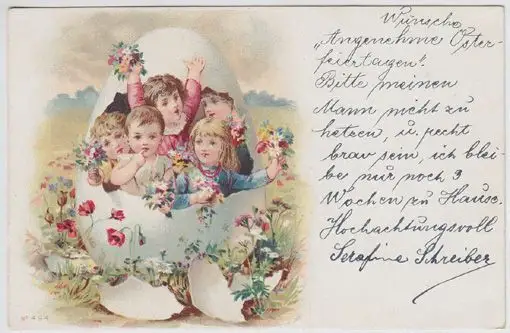 Wünsche
„Angenehme Oster-
feiertagen"!
Bitte meinen
Mann nicht zu
hetzen, u. recht
brav sein, ich blei-
be nur noch 3
Wochen zu Hause.
Hochachtungsvoll
Serafine Schreiber